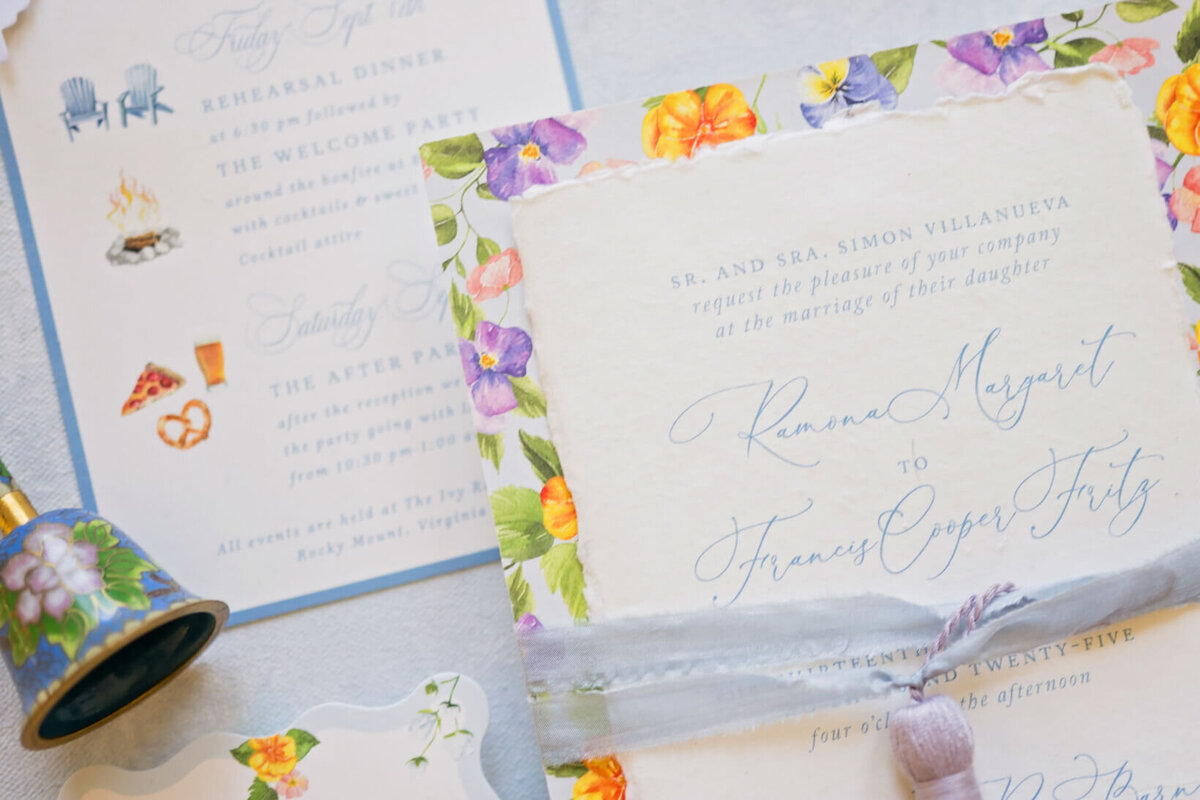 Friday Sept.
REHEARSAL DINNER
at 6:30 pm followed by
THE WELCOME PARTY
around the bonfire at
with cocktails & sweet
Cocktail attire
Saturday
THE AFTER
after the reception
the party going with
from 10:30 pm-1:00
All events are held at The Ivy
Rocky Mount, Virginia
SR. AND SRA. SIMON VILLANUEVA
request the pleasure of your company
at the marriage of their daughter
Ramona Margaret
TO
Francis Cooper Fritz
TWENTY-FIVE
four the afternoon